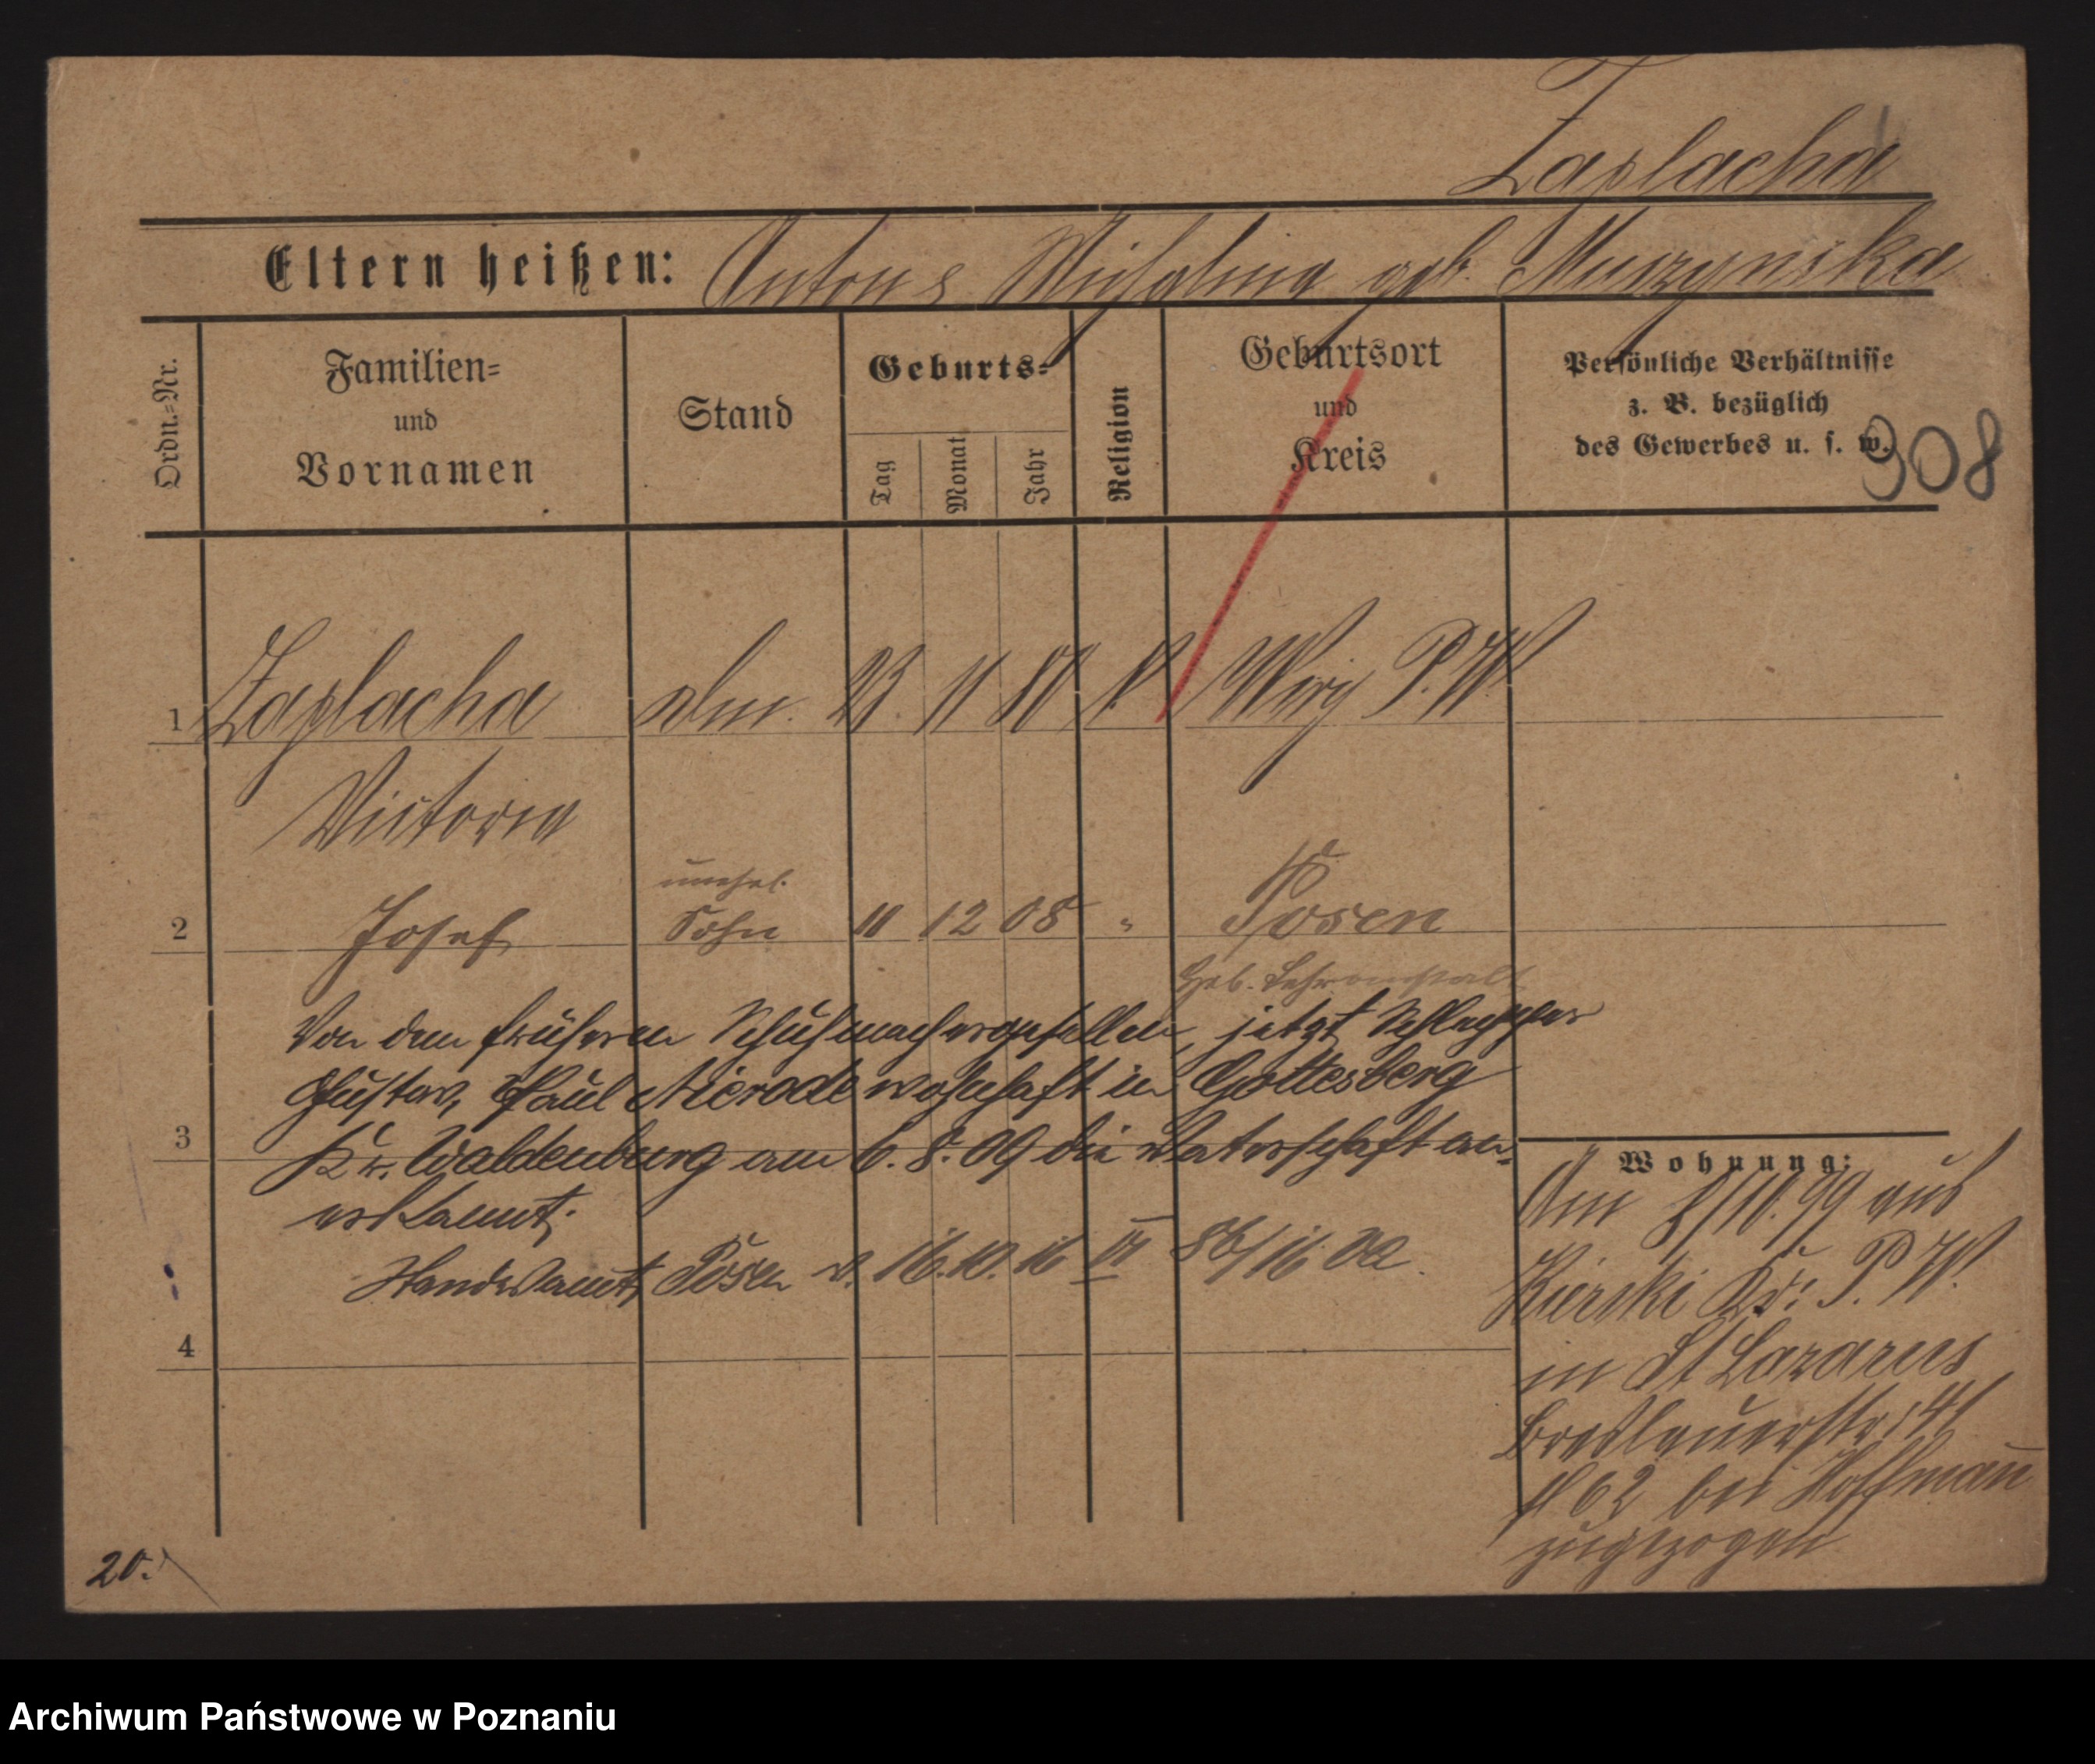 Zaplacha
Eltern heißen: Anton & Michalina geb. Muszynska
Ordn.=Nr.
Familien=
und
Vornamen
Stand
Geburts=
Tag
Monat
Jahr
Religion
Geburtsort
und
Kreis
Persönliche Verhältnisse
z. B. bezüglich
des Gewerbes u. s. w.
908
1 Zaplacha 23 11 80 k. P. W.
Victoria
unehel.
2 Josef Sohn 11 12 08 " Posen
Heb. Lehranstalt
Von dem früheren Schuhmachergesellen, jetzt Schlepper
Gustav, Paul wohnhaft in Gottesberg
3 Kr. Waldenburg am 6. 8. 09 die Vaterschaft an=
erkannt.
Standesamt Posen v. 16. 10. 16 VI 86/16
4
Wohnung:
Am 8/10. 99 aus
Kierski Kr: P. W.
in St Lazarus
Breslauerstr:
62 bei Hoffmann
zugezogen
20.
Archiwum Państwowe w Poznaniu